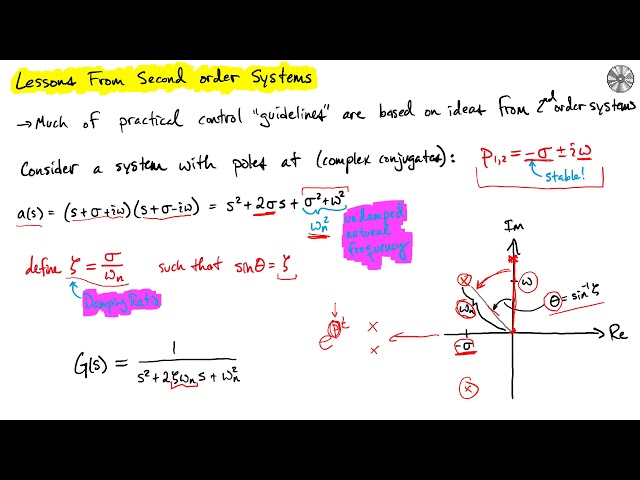 Lessons From Second order Systems
→ Much of practical control "guidelines" are based on ideas from 2nd order systems
Consider a system with poles at (complex conjugates): P1,2 = -σ ± iω
stable!
a(s) = (s+σ+iω)(s+σ-iω) = s² + 2σs + σ²+ω²
ωn² undamped natural frequency
define ζ = σ/ωn such that sinθ = ζ
Damping Ratio
G(s) = 1/(s²+2ζωn s+ωn²)
e^pt
x
x
Im
x
ω
ωn
θ = sin⁻¹ζ
-σ
Re
x